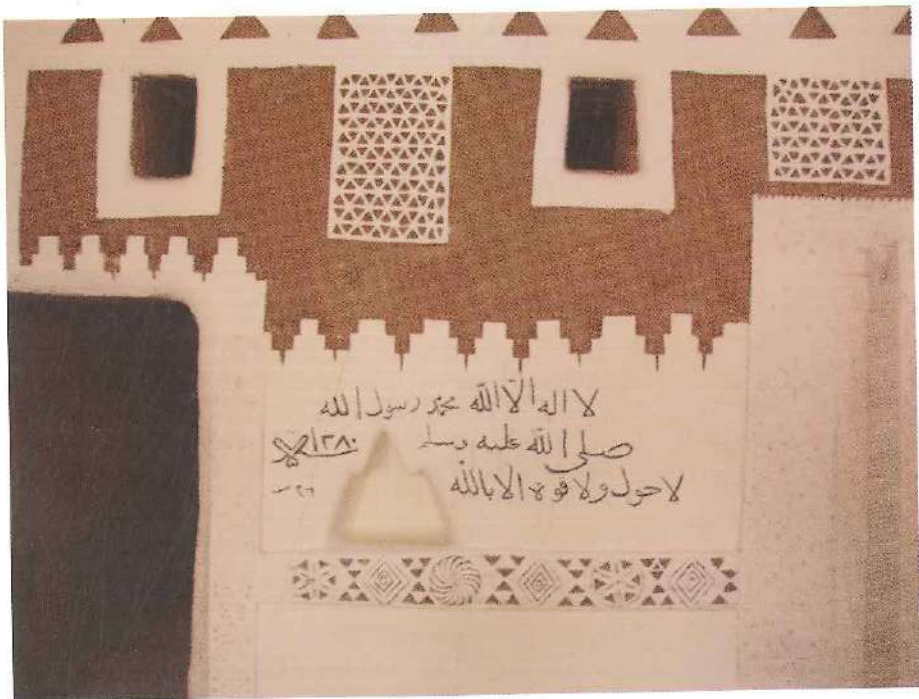 لا اله الا الله محمد رسول الله
صلى الله عليه وسلم ١٢٨٠
لا حول ولا قوة الا بالله
٢٦